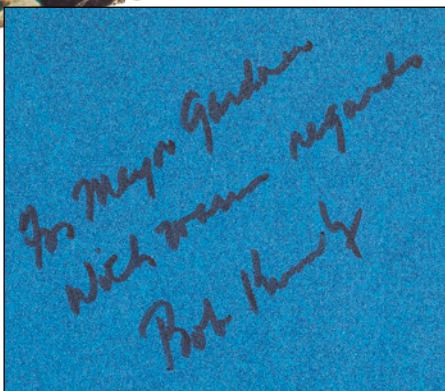 For Mayor Gardner
With warm regards
Bob Kennedy